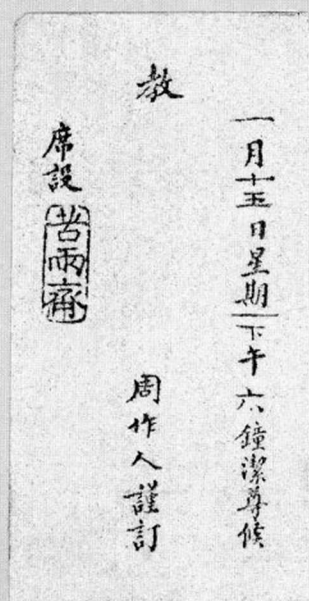 一月十五日星期一下午六鐘潔尊候
教
周作人謹訂
席設
苦雨齋